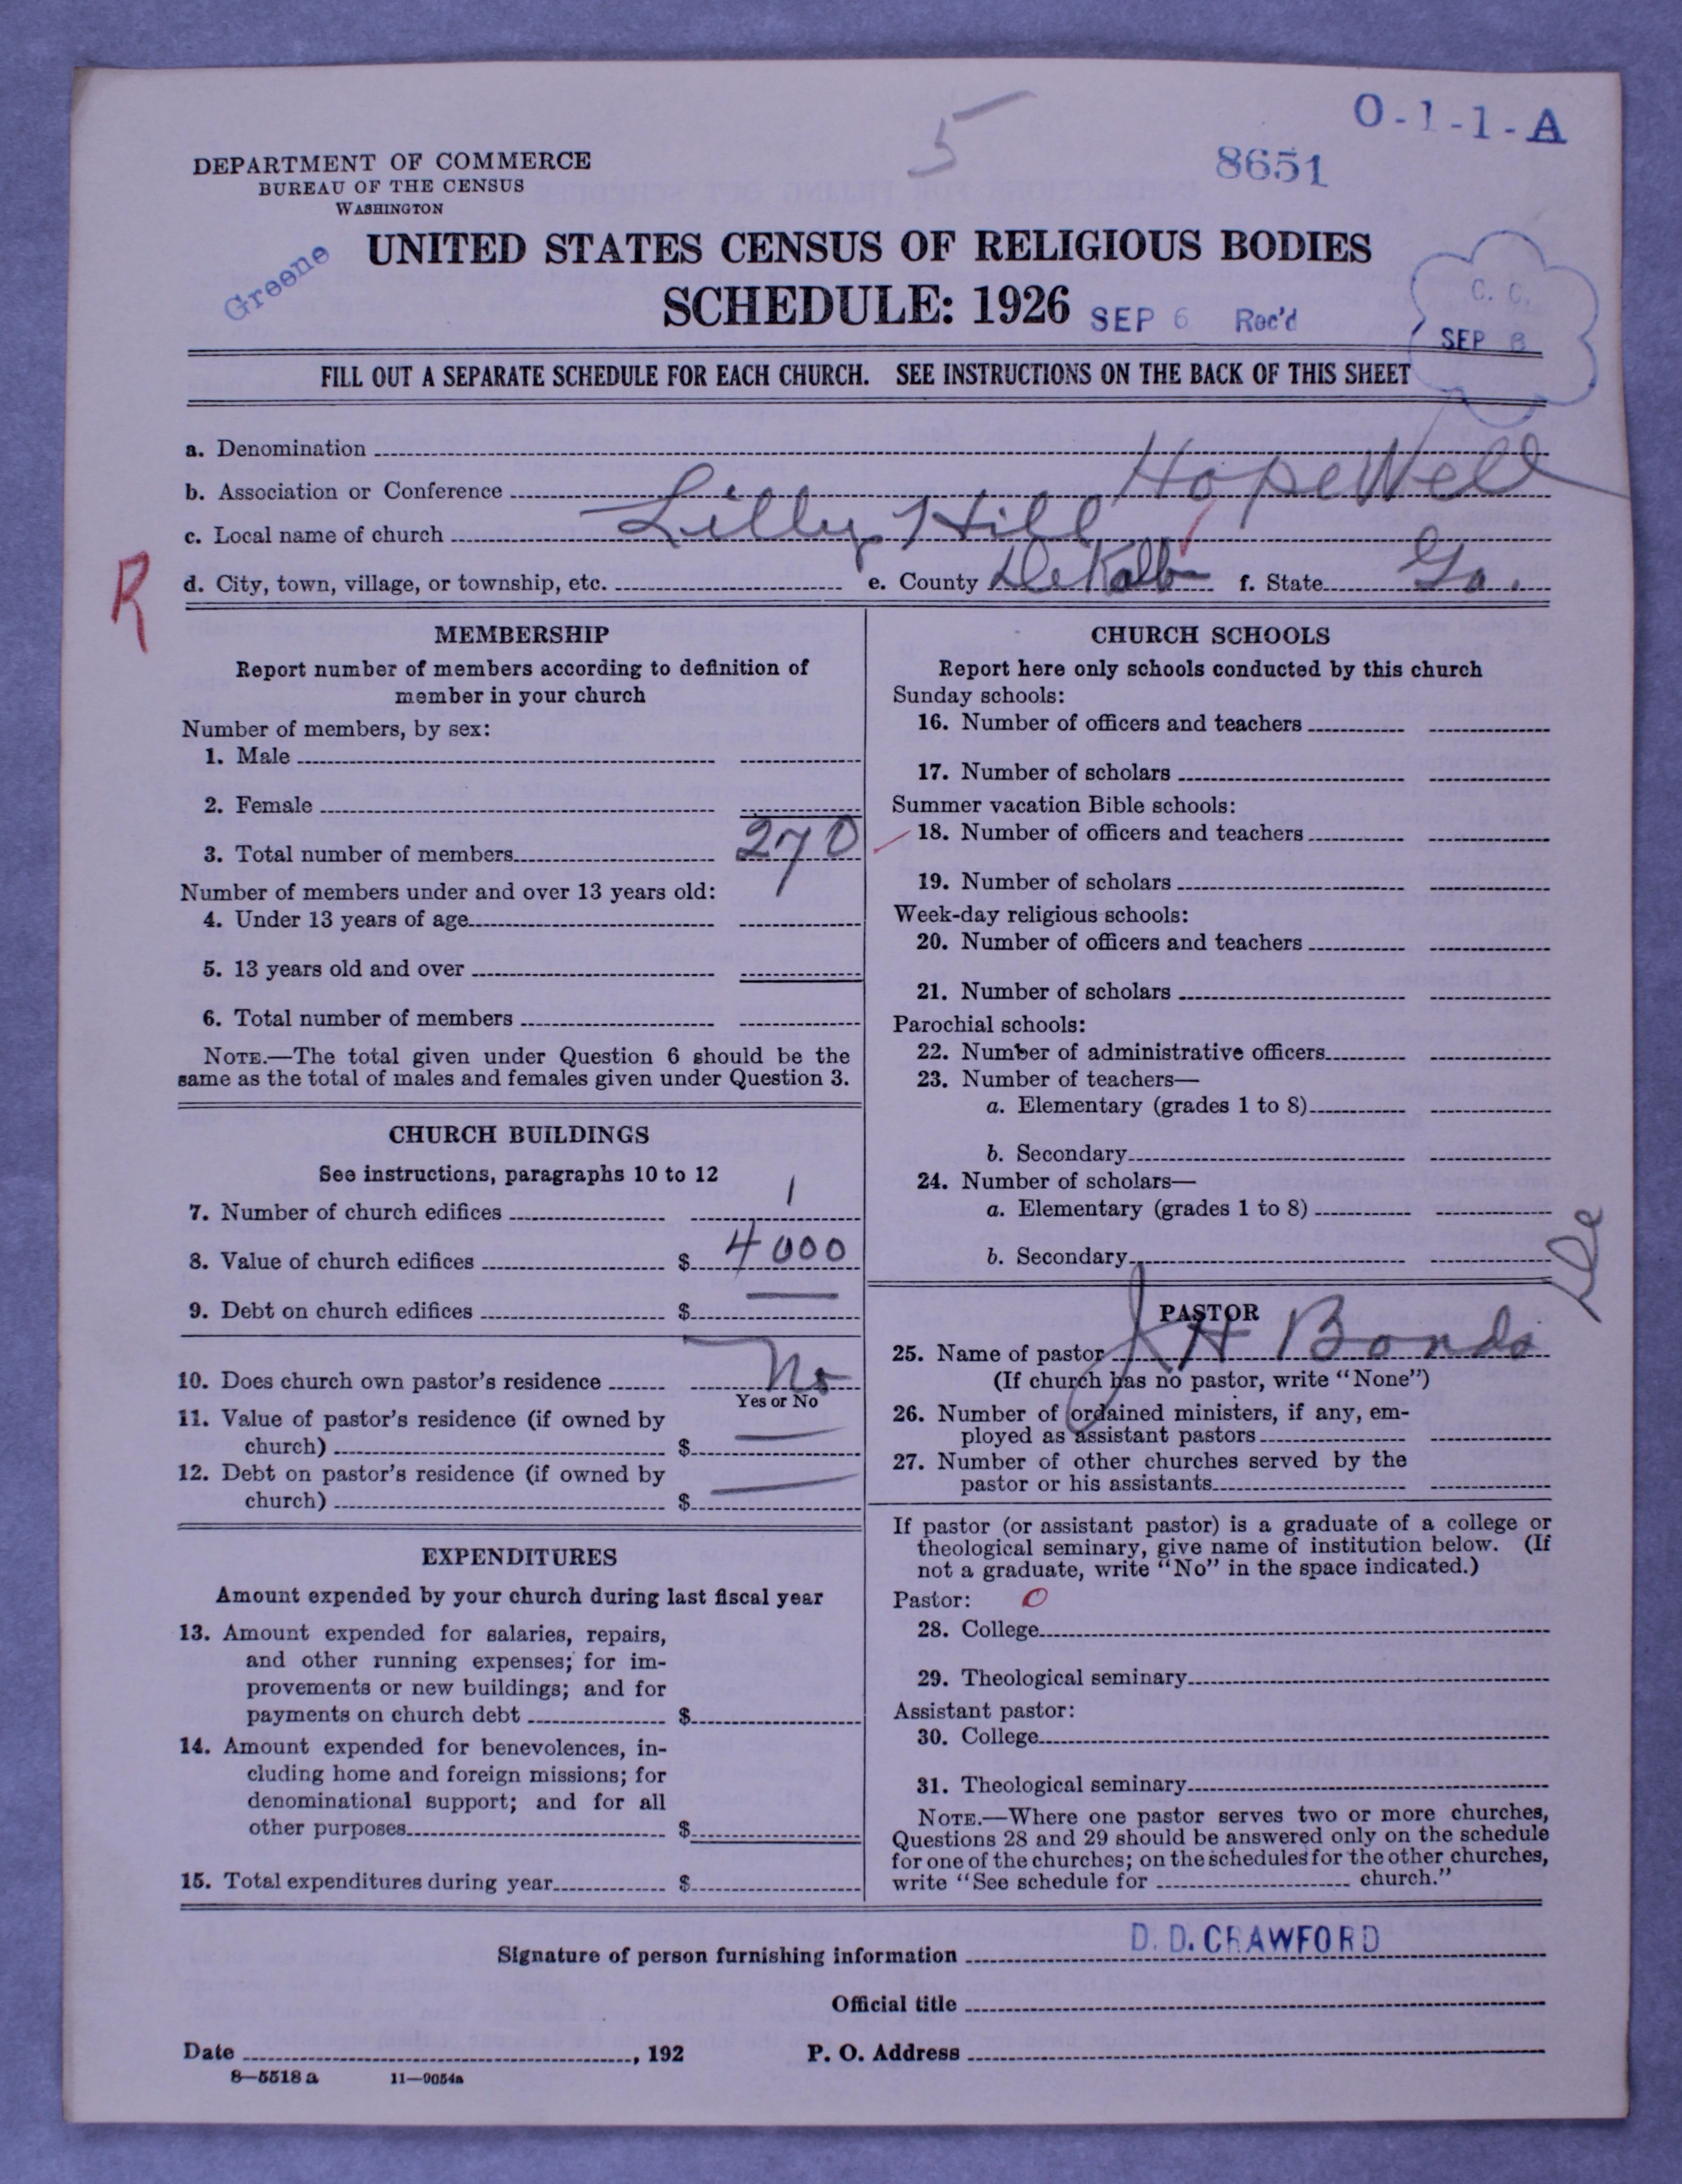 5
O-1-1-A
8651
DEPARTMENT OF COMMERCE
BUREAU OF THE CENSUS
WASHINGTON
Greene
UNITED STATES CENSUS OF RELIGIOUS BODIES
SCHEDULE: 1926
SEP 6 Rec'd
C. C.
SEP 8
FILL OUT A SEPARATE SCHEDULE FOR EACH CHURCH. SEE INSTRUCTIONS ON THE BACK OF THIS SHEET
a. Denomination
b. Association or Conference Hopewell
c. Local name of church Lilly Hill
d. City, town, village, or township, etc. e. County DeKalb f. State Ga.
R
MEMBERSHIP
Report number of members according to definition of
member in your church
Number of members, by sex:
1. Male
2. Female
3. Total number of members 270
Number of members under and over 13 years old:
4. Under 13 years of age
5. 13 years old and over
6. Total number of members
NOTE.—The total given under Question 6 should be the
same as the total of males and females given under Question 3.
CHURCH BUILDINGS
See instructions, paragraphs 10 to 12
7. Number of church edifices 1
8. Value of church edifices $ 4000
9. Debt on church edifices $ —
10. Does church own pastor's residence No
Yes or No
11. Value of pastor's residence (if owned by
church) $ —
12. Debt on pastor's residence (if owned by
church) $ —
EXPENDITURES
Amount expended by your church during last fiscal year
13. Amount expended for salaries, repairs,
and other running expenses; for im-
provements or new buildings; and for
payments on church debt $
14. Amount expended for benevolences, in-
cluding home and foreign missions; for
denominational support; and for all
other purposes $
15. Total expenditures during year $
CHURCH SCHOOLS
Report here only schools conducted by this church
Sunday schools:
16. Number of officers and teachers
17. Number of scholars
Summer vacation Bible schools:
18. Number of officers and teachers
19. Number of scholars
Week-day religious schools:
20. Number of officers and teachers
21. Number of scholars
Parochial schools:
22. Number of administrative officers
23. Number of teachers—
a. Elementary (grades 1 to 8)
b. Secondary
24. Number of scholars—
a. Elementary (grades 1 to 8)
b. Secondary
De
PASTOR
25. Name of pastor J H Bonds
(If church has no pastor, write "None")
26. Number of ordained ministers, if any, em-
ployed as assistant pastors
27. Number of other churches served by the
pastor or his assistants
If pastor (or assistant pastor) is a graduate of a college or
theological seminary, give name of institution below. (If
not a graduate, write "No" in the space indicated.)
Pastor: O
28. College
29. Theological seminary
Assistant pastor:
30. College
31. Theological seminary
NOTE.—Where one pastor serves two or more churches,
Questions 28 and 29 should be answered only on the schedule
for one of the churches; on the schedules for the other churches,
write "See schedule for church."
Signature of person furnishing information D. D. CRAWFORD
Official title
Date , 192 P. O. Address
8—5518 a 11—9054a